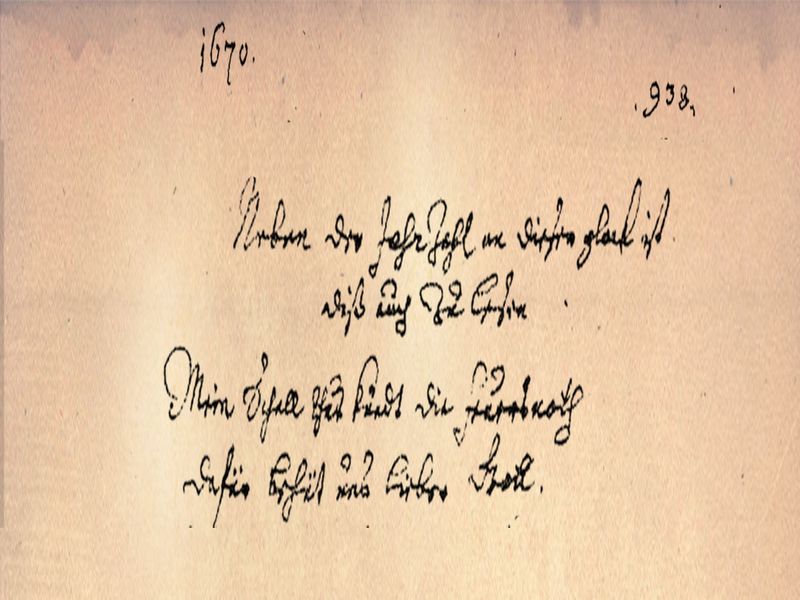 1670.
.938.
Neben der JahrZahl an dieser glock ist
diß auch Zu lesen
Mein Schall thut kundt die feuersnoth
dafür behüt uns lieber Gott.